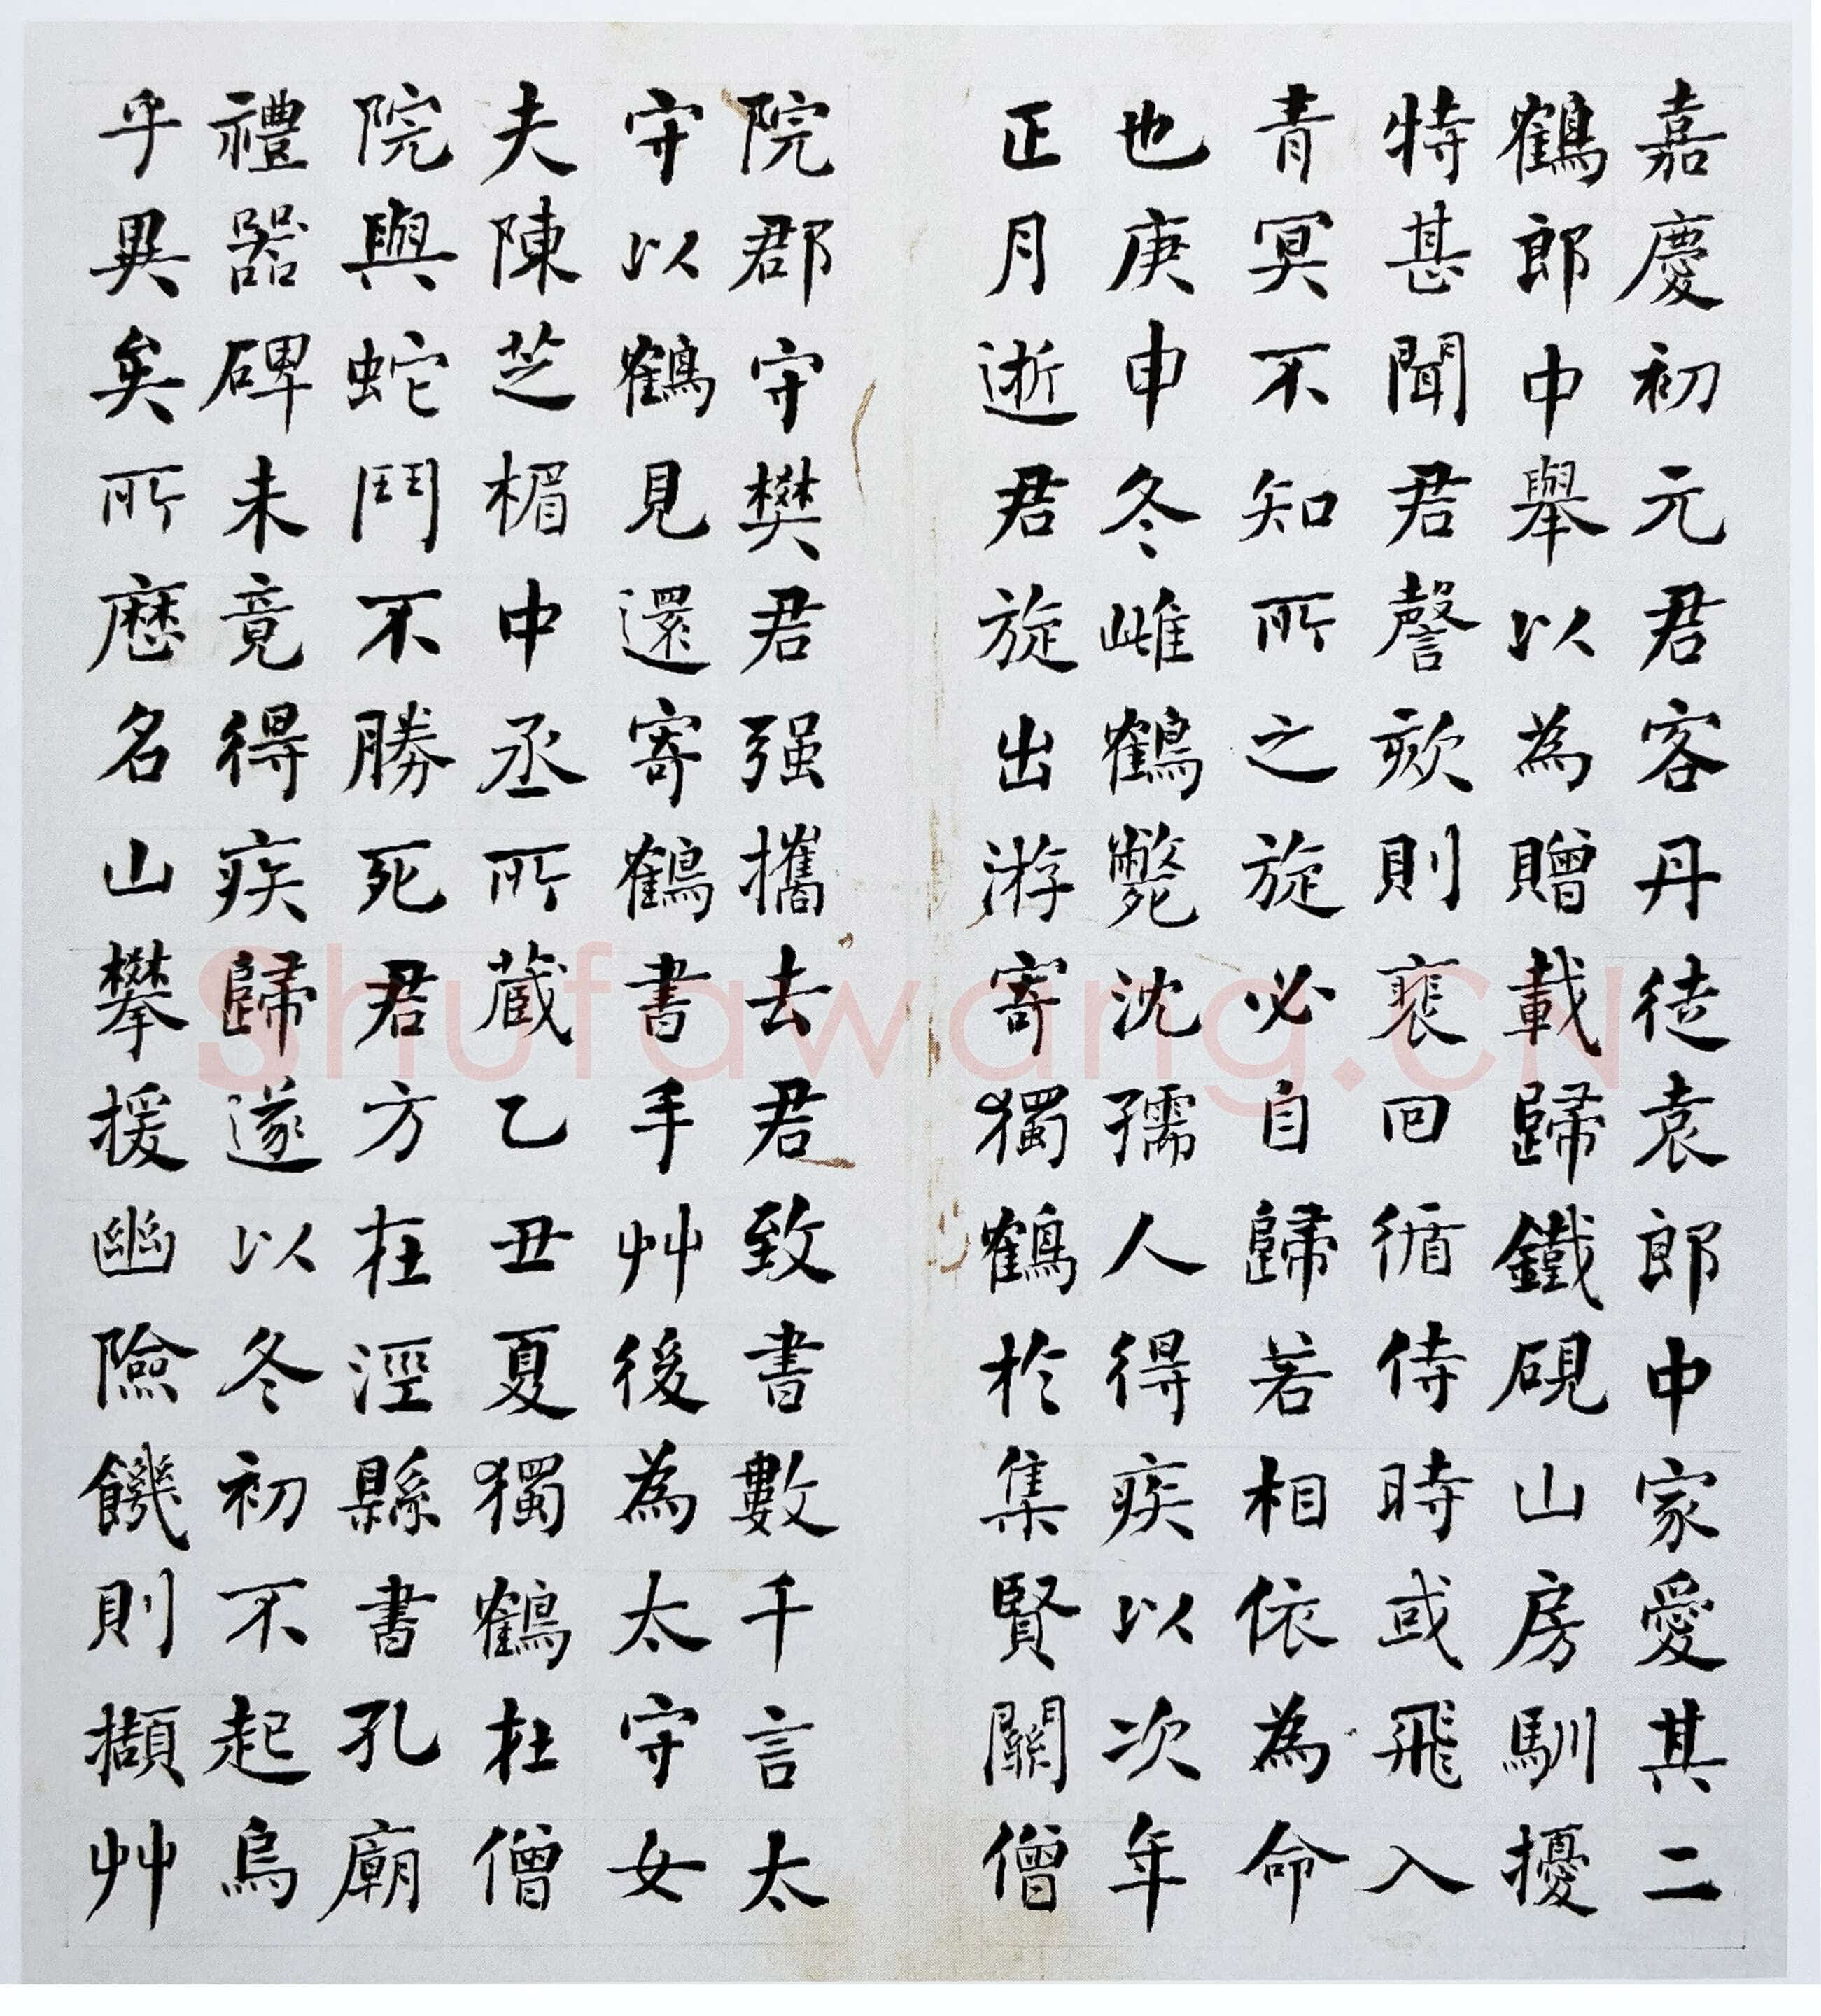 嘉慶初元君客丹徒袁郎中家愛其二
鶴郎中舉以為贈載歸鐵硯山房馴擾
特甚聞君謦欬則裵回循侍時或飛入
青冥不知所之旋必自歸若相依為命
也庚申冬雌鶴斃沈孺人得疾以次年
正月逝君旋出游寄獨鶴於集賢關僧
院郡守樊君强攜去君致書數千言太
守以鶴見還寄鶴書手艸後為太守女
夫陳芝楣中丞所藏乙丑夏獨鶴在僧
院與蛇鬥不勝死君方在涇縣書孔廟
禮器碑未竟得疾歸遂以冬初不起烏
乎異矣所歷名山攀援幽險饑則擷艸
Shufawang.CN